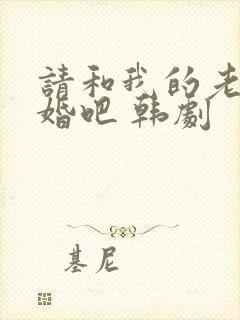 請和我的老
婚吧 韩劇
基尼